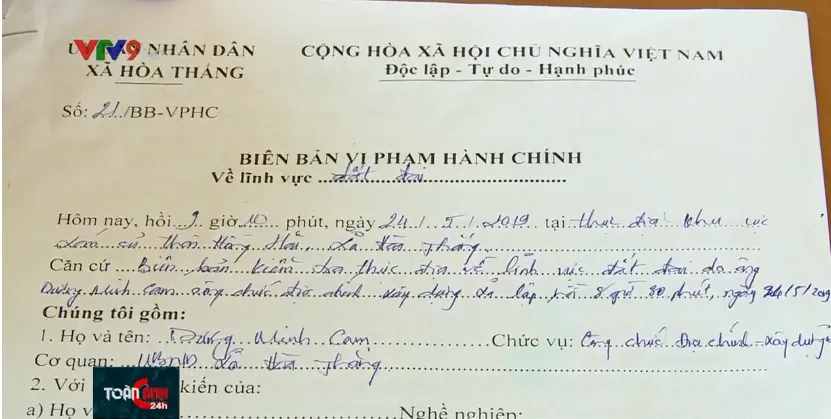 VTV9
ỦY BAN NHÂN DÂN CỘNG HÒA XÃ HỘI CHỦ NGHĨA VIỆT NAM
XÃ HÒA THẮNG Độc lập - Tự do - Hạnh phúc
Số: 21../BB-VPHC
BIÊN BẢN VI PHẠM HÀNH CHÍNH
Về lĩnh vực ...đất đai...
Hôm nay, hồi 9 giờ 10 phút, ngày 24/5/2019 tại thực địa khu vực
thôn Hồng, xã Hòa Thắng
Căn cứ ...Biên bản kiểm tra thực địa về lĩnh vực đất đai do ông
Dương Minh Cam công chức địa chính xây dựng xã lập hồi 8 giờ 30 phút, ngày 24/5/2019
Chúng tôi gồm:
1. Họ và tên: Dương Minh Cam Chức vụ: Công chức Địa chính - xây dựng
Cơ quan: UBND xã Hòa Thắng
2. Với kiến của:
a) Họ v Nghề nghiệp:
TOÀN CẢNH
24h